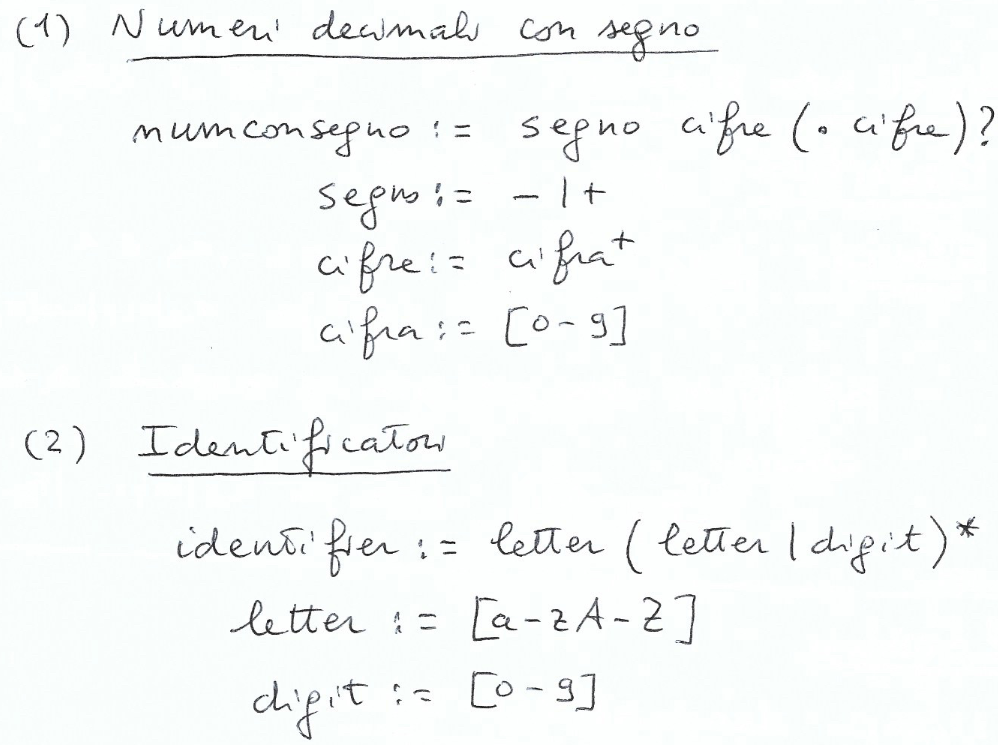 (1) Numeri decimali con segno
numconsegno := segno cifre (. cifre)?
segno := - | +
cifre := cifra⁺
cifra := [0-9]
(2) Identificatori
identifier := letter (letter | digit)*
letter := [a-zA-Z]
digit := [0-9]